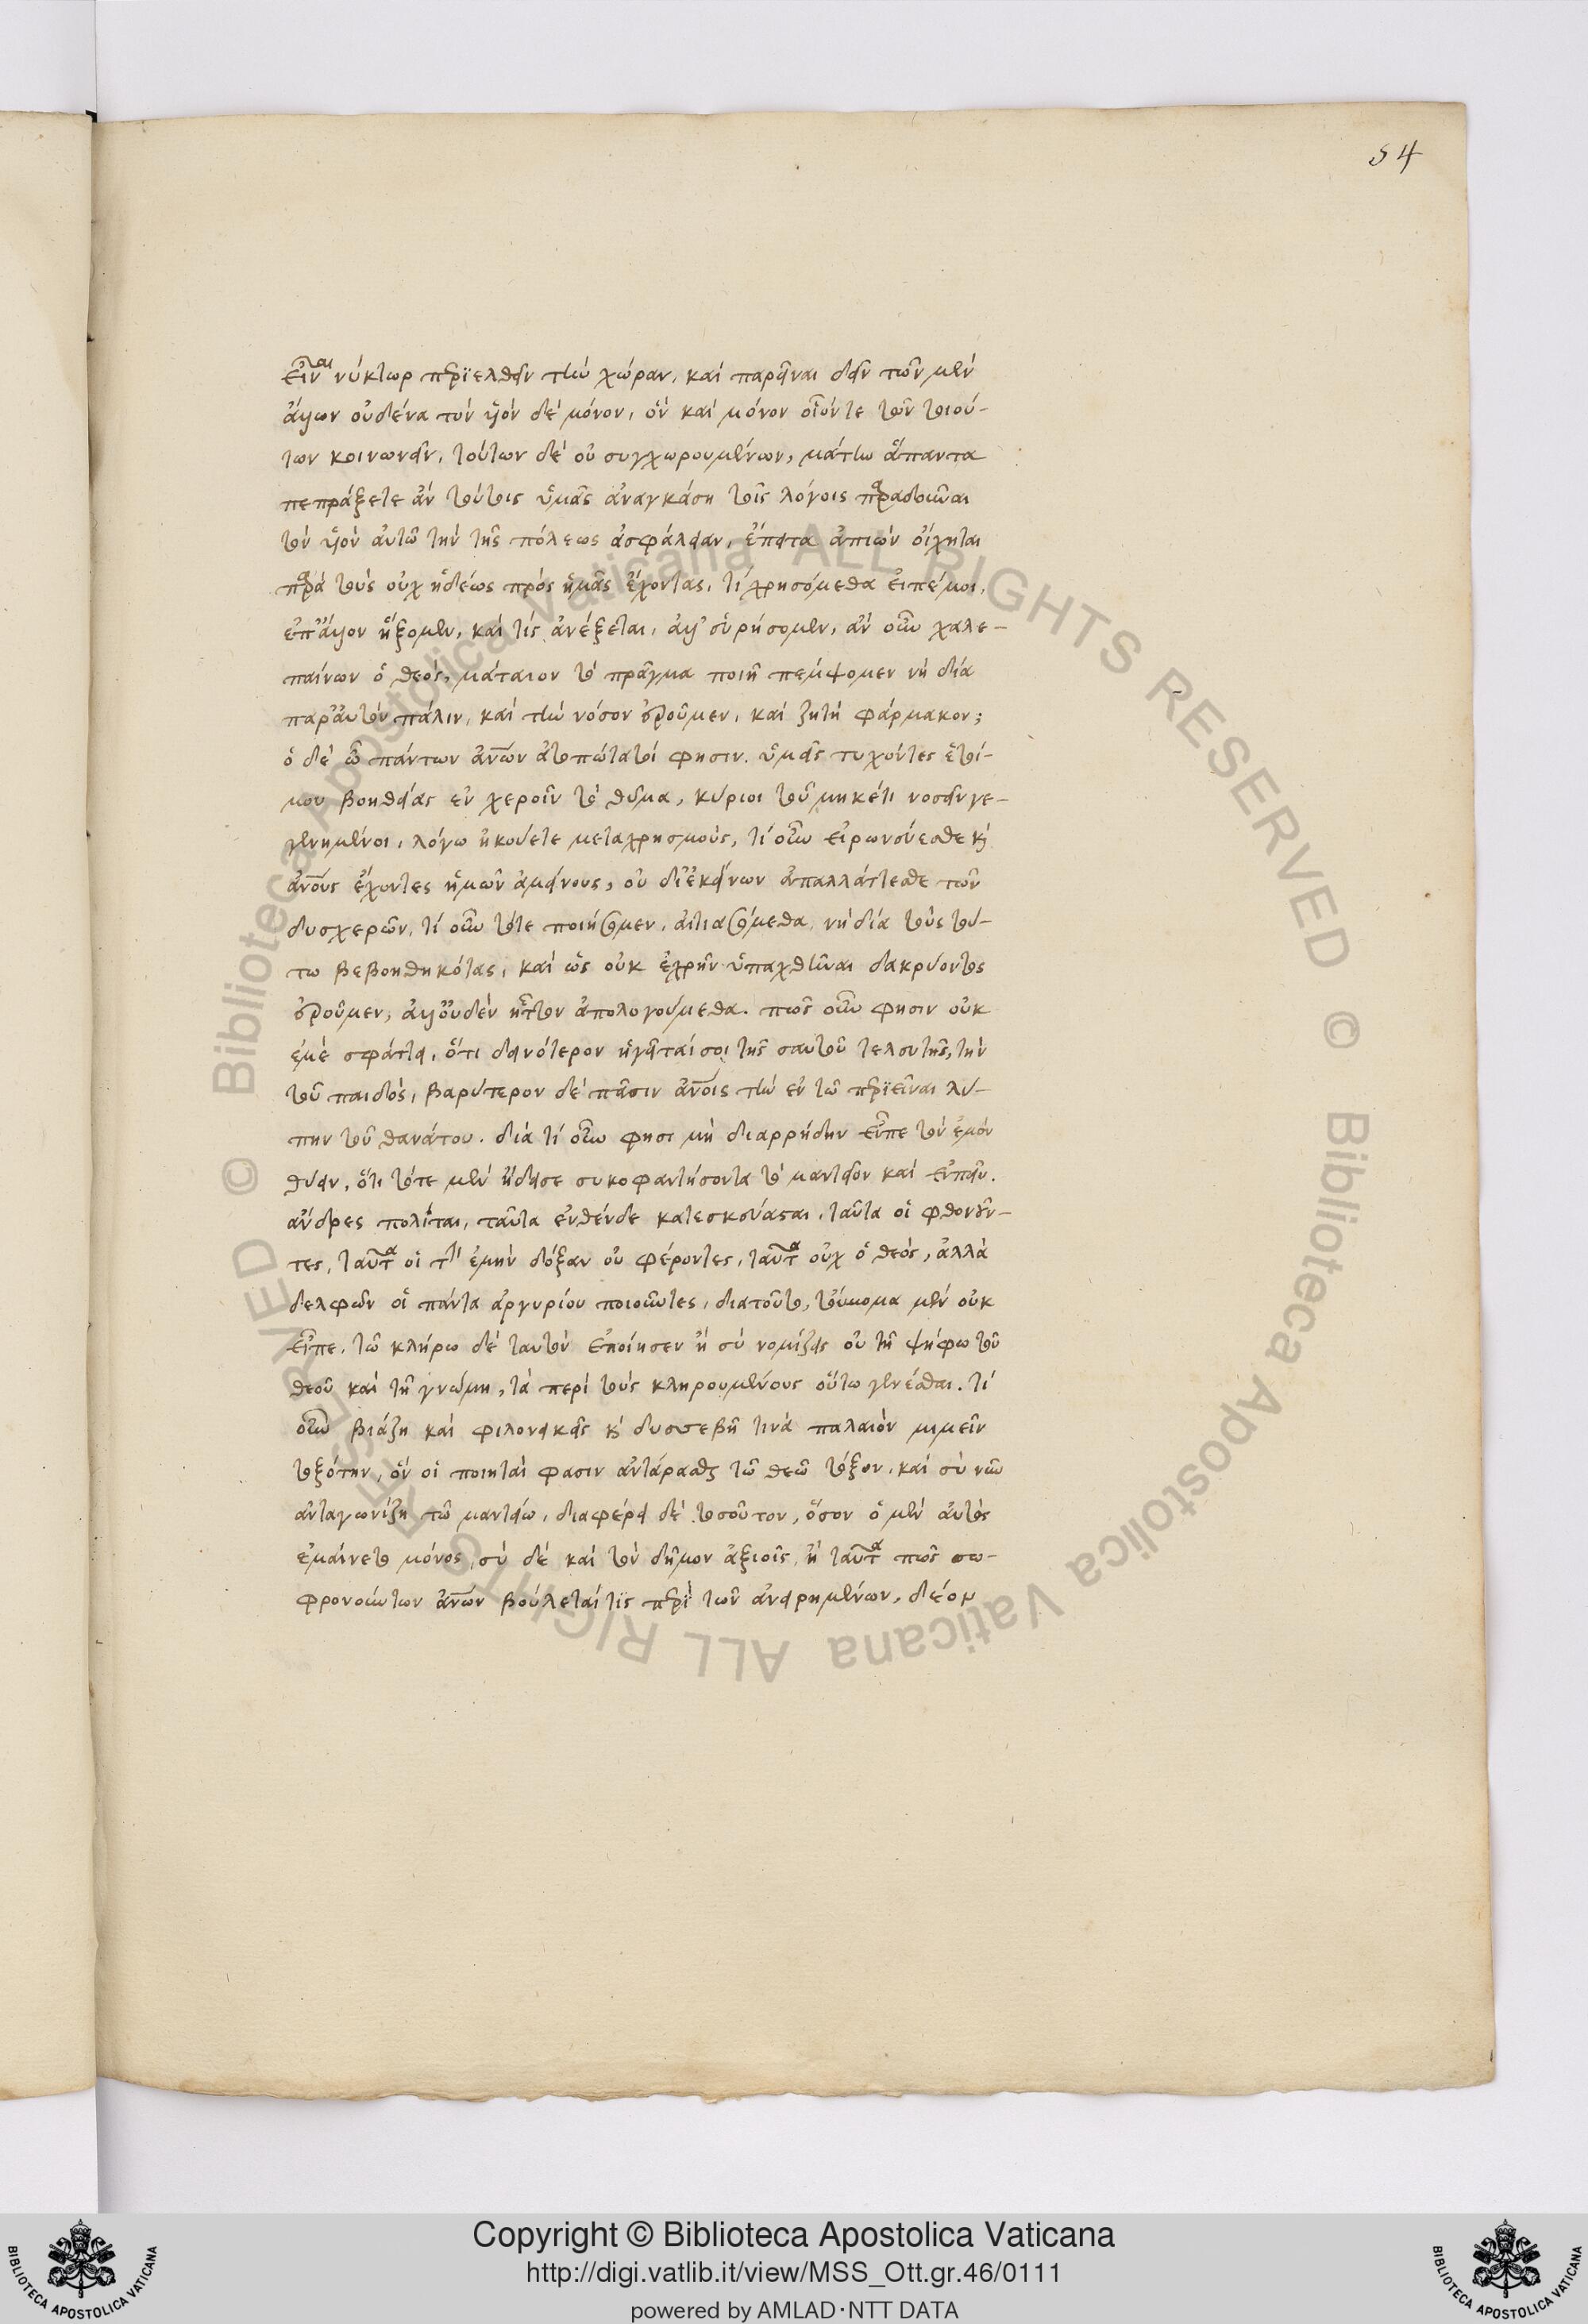 54
εἶναι νύκτωρ περιελθεῖν τὴν χώραν, καὶ παρεῖναι δεῖν τῶν μὲν
ἄλλων οὐδένα τὸν υἱὸν δὲ μόνον, ὃν καὶ μόνον οἷόντε τῶν τοιού-
των κοινωνεῖν, τούτων δὲ οὐ συγχωρουμένων, μάτην ἅπαντα
πεπράξεται ἂν τούτοις ὑμᾶς ἀναγκάση τοῖς λόγοις παραδοῦναι
τὸν υἱὸν αὐτῶ τὴν τῆς πόλεως ἀσφάλειαν, ἔπειτα ἀπιὼν οἴχηται
παρὰ τοὺς οὐχ ἡδέως πρὸς ἡμᾶς ἔχοντας, τί χρησόμεθα εἰπέ μοι,
ἐπ' ἄλλον ἥξομεν, καὶ τίς ἀνέξεται, ἀλλ' εὑρήσομεν, ἂν οὖν χαλε-
παίνων ὁ θεός, μάταιον τὸ πρᾶγμα ποιῆ πέμψομεν νὴ δία
παρ' αὐτὸν πάλιν, καὶ τὴν νόσον ἐροῦμεν, καὶ ζητῆ φάρμακον;
ὁ δὲ ὦ πάντων ἀνων ἀτοπώτατοί φησιν. ὑμεῖς τυχόντες ἑτοί-
μου βοηθείας ἐν χεροῖν τὸ θῦμα, κύριοι τοῦ μηκέτι νοσεῖν γε-
γενημένοι, λόγω ἠκούετε μετὰ χρησμούς, τί οὖν εἰρωνεύεσθε κ
ἀνους ἔχοντες ἡμῶν ἀμείνους, οὐ δι' ἐκείνων ἀπαλλάττεσθε τῶν
δυσχερῶν, τί οὖν τότε ποιήσομεν, αἰτιασόμεθα νὴ δία τοὺς τού-
τω βεβοηθηκότας, καὶ ὡς οὐκ ἐχρῆν ὑπαχθῆναι δακρύοντος
ἐροῦμεν, ἀλλ' οὐδὲν ἧττον ἀπολογούμεθα. πῶς οὖν φησιν οὐκ
ἐμὲ σφάττει, ὅτι δεινότερον ἡγεῖταί σοι τῆς σαυτοῦ τελευτῆς, τὴν
τοῦ παιδός, βαρύτερον δὲ πᾶσιν ἀνοις τὴν ἐν τῶ περιεῖναι λύ-
πην τοῦ θανάτου. διὰ τί οὖν φησι μὴ διαρρήδην εἶπε τὸν ἐμὸν
θύειν, ὅτι τότε μὲν ᾔδησε συκοφαντήσοντα τὸ μαντεῖον καὶ εἰπεῖν.
ἄνδρες πολῖται, ταῦτα ἐνθένδε κατεσκεύασται, ταῦτα οἱ φθονοῦν-
τες, ταῦτα οἱ τὴν ἐμὴν δόξαν οὐ φέροντες, ταῦτα οὐχ ὁ θεός, ἀλλὰ
δελφῶν οἱ πάντα ἀργυρίου ποιοῦντες, διατοῦτο, τοὔνομα μὲν οὐκ
εἶπε, τῶ κλήρω δὲ ταυτὸν ἐποίησεν ἢ σὺ νομίζεις οὐ τῆ ψήφω τοῦ
θεοῦ καὶ τῆ γνώμη, τὰ περὶ τοὺς κληρουμένους οὕτω γενέσθαι. τί
οὖν βιάζη καὶ φιλονεικεῖς κ δυσσεβῆ τινὰ παλαιὸν μιμεῖν
τοξότην, ὃν οἱ ποιηταί φασιν ἀντάρασθαι τῶ θεῶ τόξον, καὶ σὺ νῦν
ἀνταγωνίζη τῶ μαντείω, διαφέρει δὲ τοσοῦτον, ὅσον ὁ μὲν αὐτὸς
ἐμαίνετο μόνος, σὺ δὲ καὶ τὸν δῆμον ἀξιοῖς, ἢ ταῦτα πῶς σω-
φρονούντων ἀνων βούλεταί τις περὶ τῶν ἀνειρημένων, δέομ
Copyright © Biblioteca Apostolica Vaticana
http://digi.vatlib.it/view/MSS_Ott.gr.46/0111
powered by AMLAD·NTT DATA
© Biblioteca Apostolica Vaticana ALL RIGHTS RESERVED © Biblioteca Apostolica Vaticana ALL RIGHTS RESERVED
BIBLIOTECA APOSTOLICA VATICANA
BIBLIOTECA APOSTOLICA VATICANA